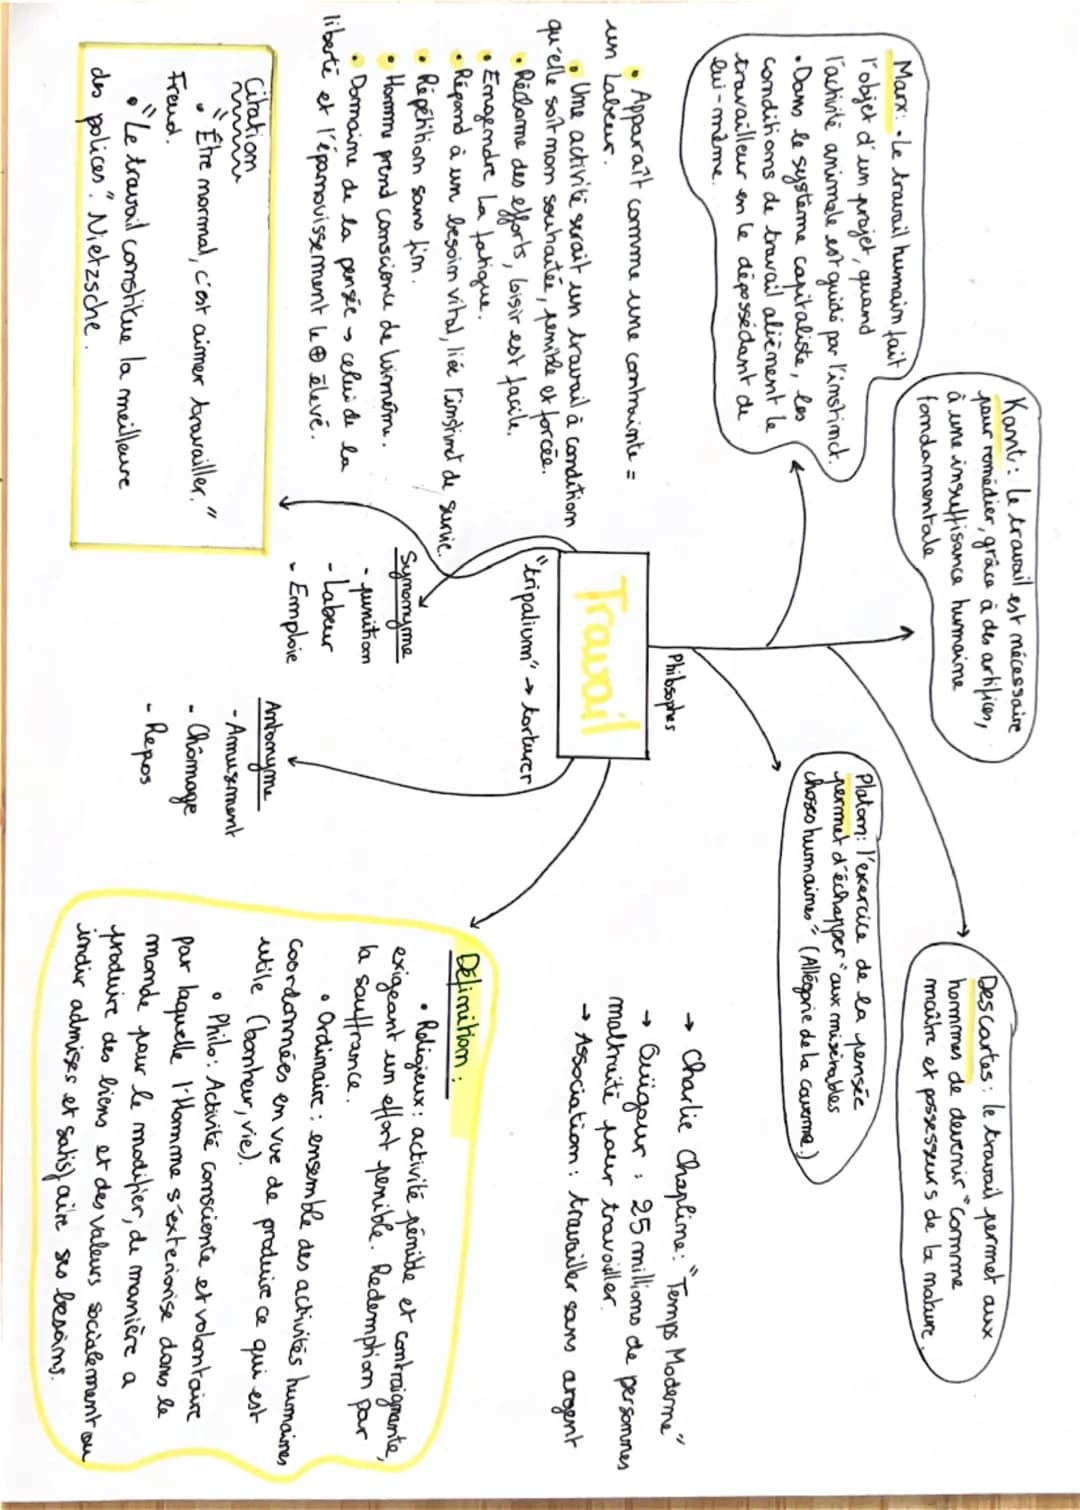 Marx: • Le travail humain fait
l'objet d'un projet, quand
l'activité animale est guidé par l'instinct.
• Dans le système capitaliste, les
conditions de travail aliènent le
travailleur en le dépossédant de
lui-même.
Kant: le travail est nécessaire
pour remédier, grâce à des artifices,
à une insuffisance humaine
fondamentale
Descartes: le travail permet aux
hommes de devenir "comme
maître et possesseurs de la nature.
Platon: l'exercice de la pensée
permet d'échapper "aux misérables
choses humaines" (Allégorie de la caverne.)
Philsophes
Travail
"tripalium" → torturer
• Apparaît comme une contrainte =
un labeur.
• Une activité serait un travail à condition
qu'elle soit non souhaitée, pénible et forcée.
• Réclame des efforts, loisir est facile.
• Engendre la fatigue.
• Répond à un besoin vital, liée l'instinct de survie.
• Répétition sans fin.
• Homme prend conscience de luimême.
• Domaine de la pensée → celui de la
liberté et l'épanouissement le ⊕ élevé.
→ Charlie Chapline: "Temps Moderne"
→ Ouïgour : 25 millions de personnes
maltraité pour travailler.
→ Association: travailler sans argent
Citation
• "Être normal, c'est aimer travailler."
Freud.
• "Le travail constitue la meilleure
des polices." Nietzsche.
Synonyme
- punition
- Labeur
- Emploie
Antonyme
- Amusment
- Chômage
- Repos
Définition :
• Religieux: activité pénible et contraignante,
exigeant un effort pénible. Redemption par
la souffrance.
• Ordinaire: ensemble des activités humaines
coordonnées en vue de produire ce qui est
utile (bonheur, vie).
• Philo: Activité consciente et volontaire
par laquelle l'Homme s'exteriorise dans le
monde pour le modifier, de manière a
produire des biens et des valeurs socialement ou
indiv admises et satisfaire ses besoins.